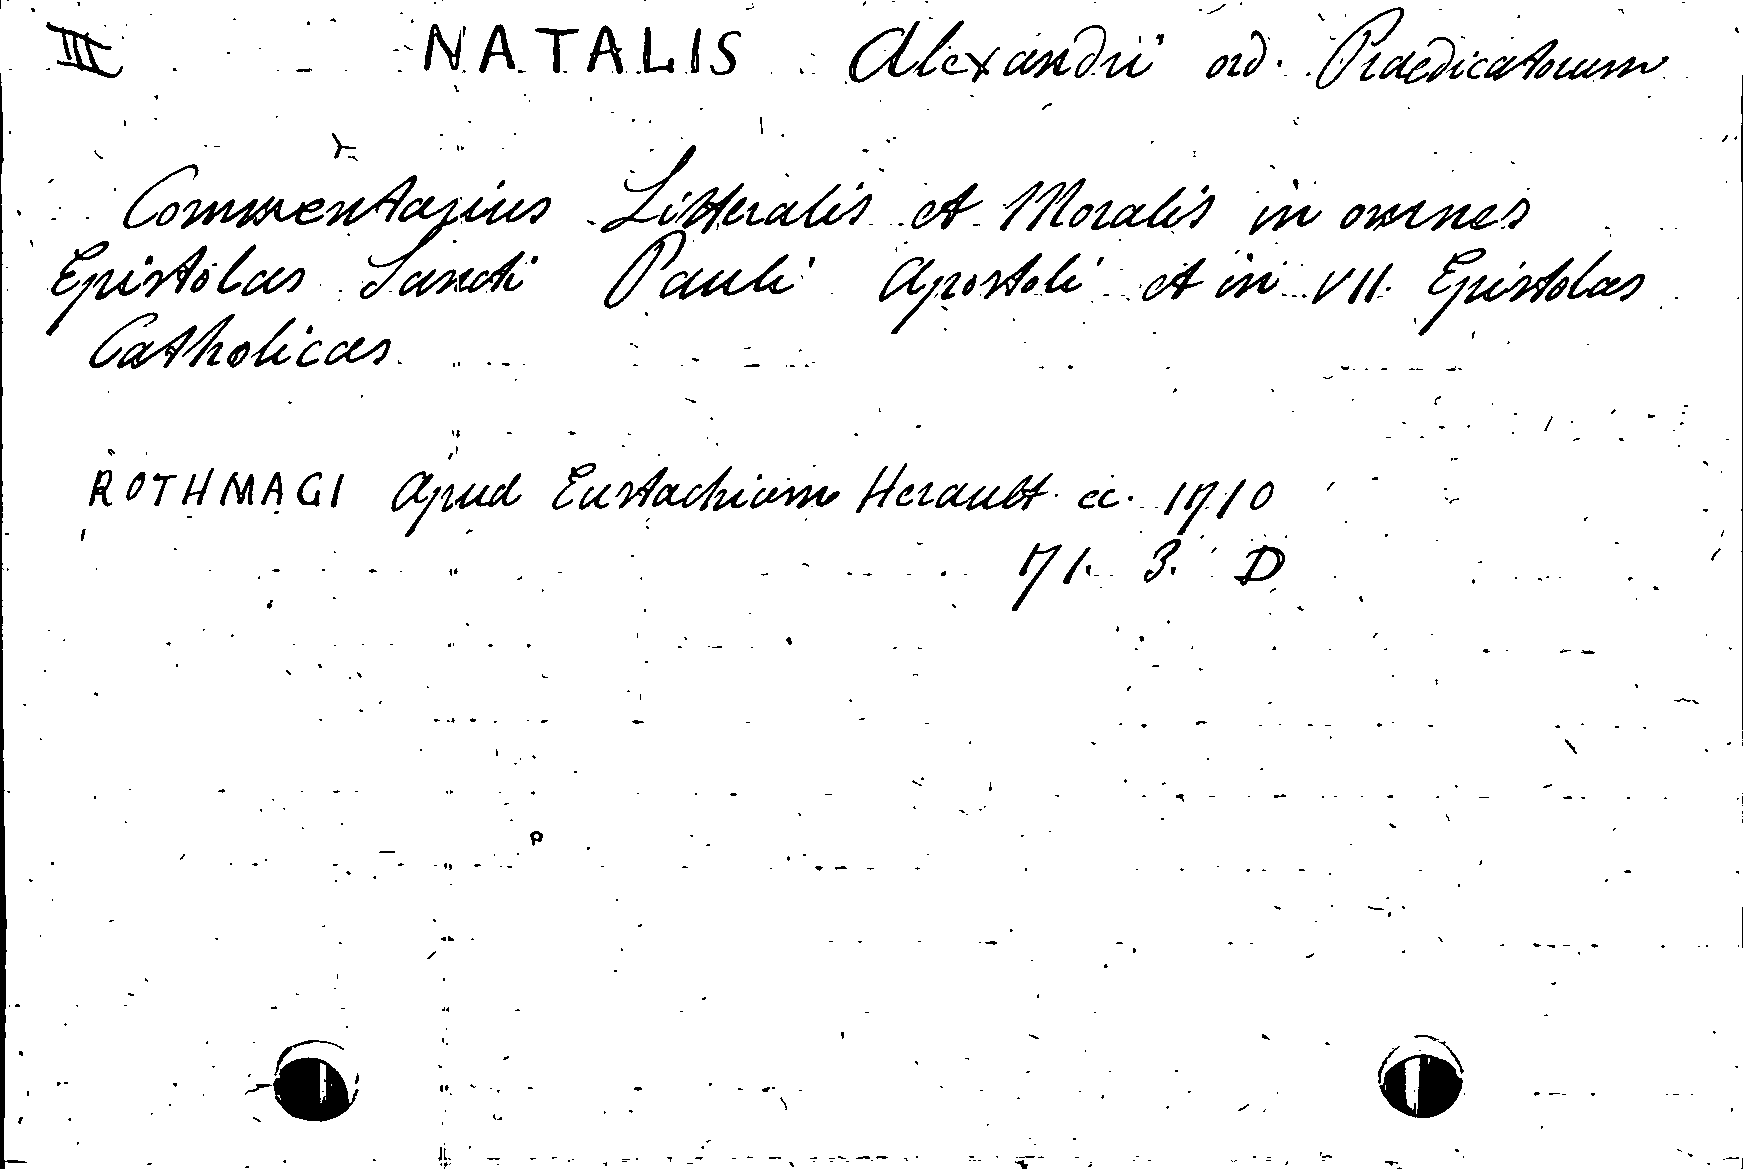 III NATALIS Alexandri ord. Praedicatorum
Commentarius Litteralis et Moralis in omnes
Epistolas Sancti Pauli Apostoli et in VII. Epistolas
Catholicas
ROTHMAGI apud Eustachium Herault. ec. 1710
71. 3. D